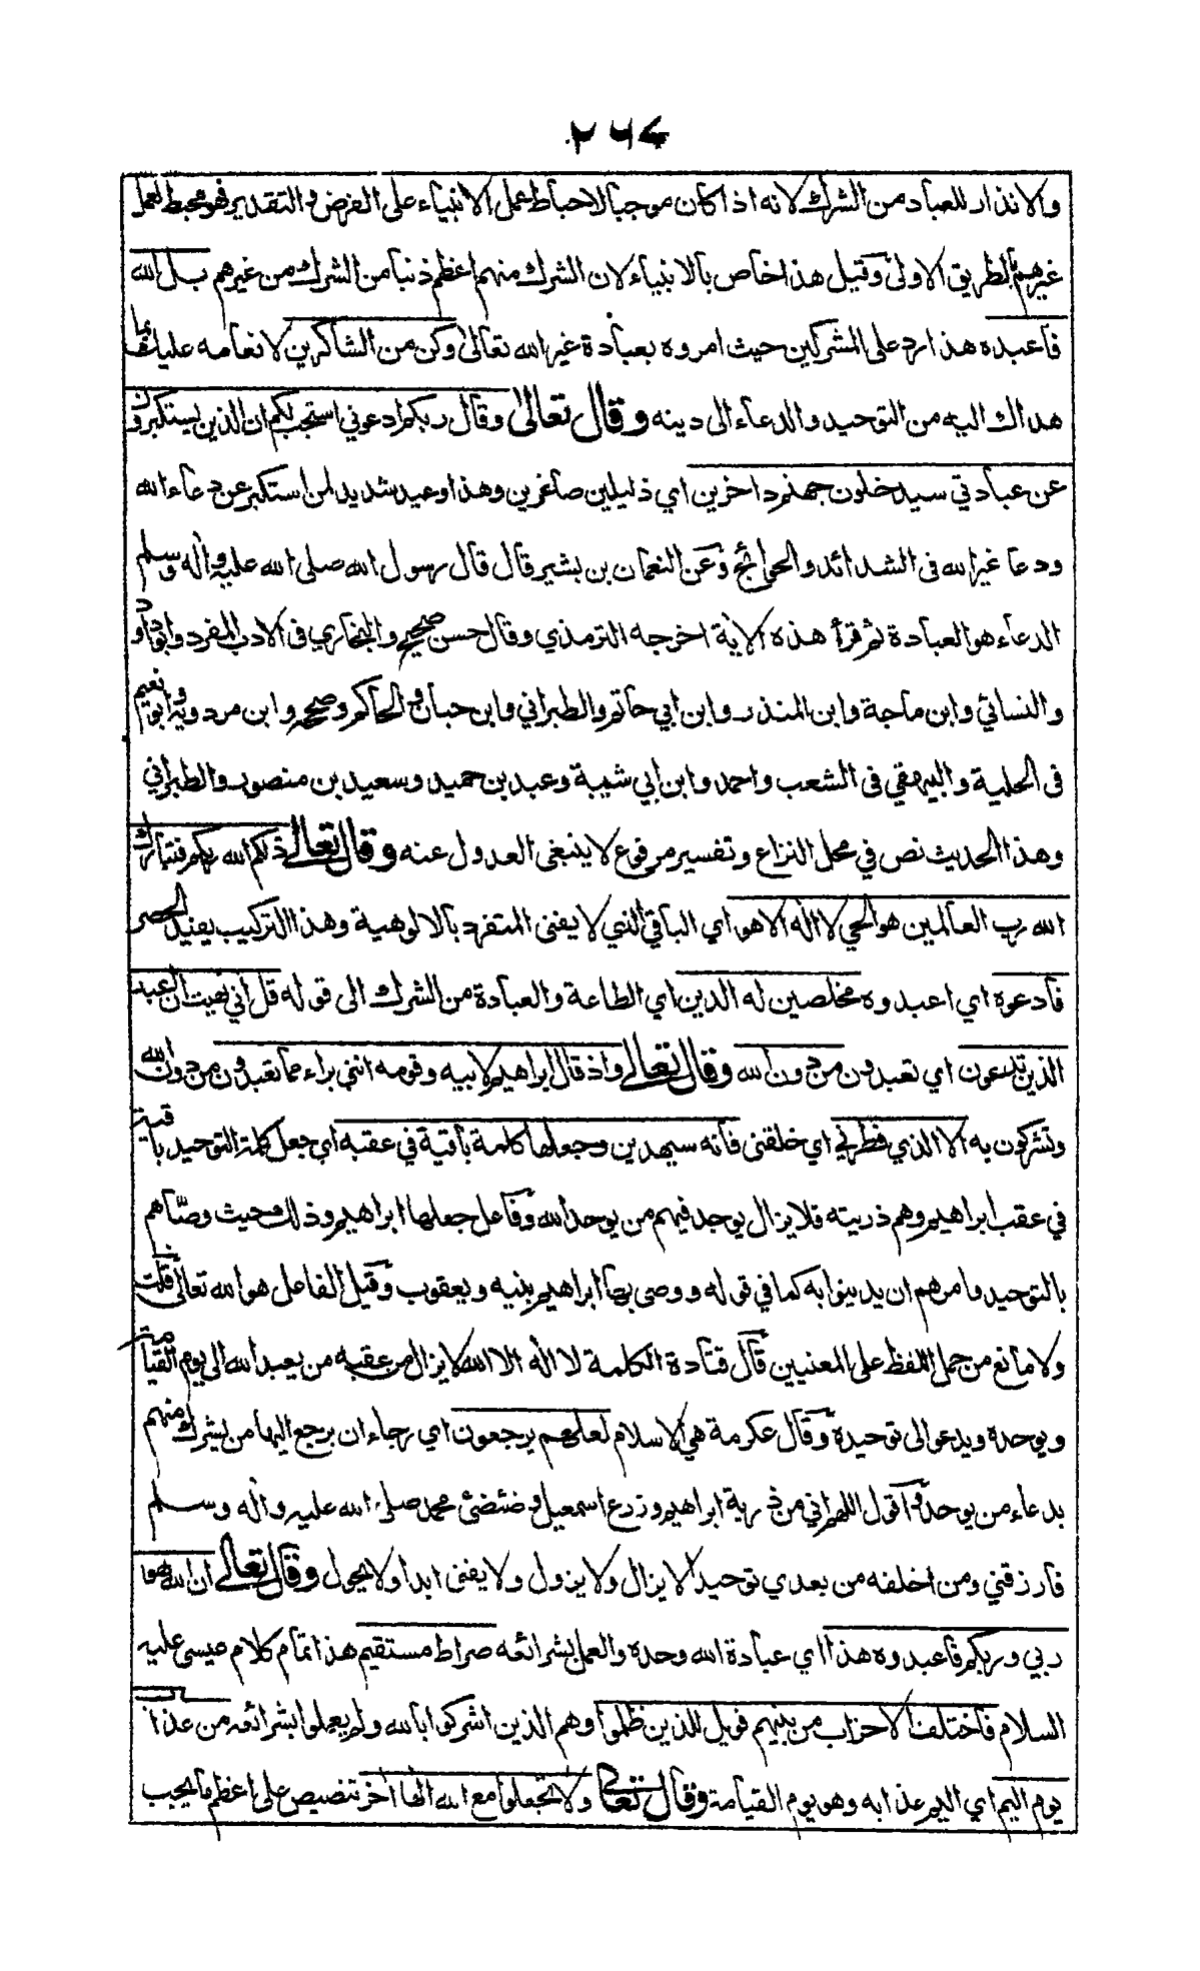 ٢٦٤
والانذار للعباد من الشرك لانه اذا كان موجبا لاحباط عمل الانبياء على الفرض والتقدير فهو محبط لعمل
غيرهم بالطريق الاولى وقيل هذا خاص بالانبياء لان الشرك منهم اعظم ذنبا من الشرك من غيرهم بل الله
فاعبده هذا رد على المشركين حيث امروه بعبادة غير الله تعالى وكن من الشاكرين لانعامه عليك بما
هداك اليه من التوحيد والدعاء الى دينه وقال تعالى وقال ربكم ادعوني استجب لكم ان الذين يستكبرون
عن عبادتي سيدخلون جهنم داخرين اي ذليلين صاغرين وهذا وعيد شديد لمن استكبر عن دعاء الله
ودعا غير الله فى الشدائد والحوائج وعن النعمان بن بشير قال قال رسول الله صلى الله عليه واله وسلم
الدعاء هو العبادة ثم قرأ هذه الاية اخرجه الترمذي وقال حسن صحيح والبخاري فى الادب المفرد وابو داود
والنسائي وابن ماجة وابن المنذر وابن ابي حاتم والطبراني وابن حبان والحاكم وصححه وابن مردويه وابو نعيم
فى الحلية والبيهقي فى الشعب واحمد وابن ابي شيبة وعبد بن حميد وسعيد بن منصور والطبراني
وهذا الحديث نص في محل النزاع وتفسير مرفوع لا ينبغى العدول عنه وقال تعالى ذلكم الله ربكم فتبارك
الله رب العالمين هو الحي لا اله الا هو اي الباقي الذي لا يفنى المتفرد بالالوهية وهذا التركيب يفيد الحصر
فادعوه اي اعبدوه مخلصين له الدين اي الطاعة والعبادة من الشرك الى قوله قل اني نهيت ان اعبد
الذين تدعون اي تعبدون من دون الله وقال تعالى واذ قال ابراهيم لابيه وقومه انني براء مما تعبدون من دون الله
وتشركون به الا الذي فطرني اي خلقنى فانه سيهدين وجعلها كلمة باقية في عقبه اي جعل كلمة التوحيد باقية
في عقب ابراهيم وهم ذريته فلا يزال يوجد فيهم من يوحد الله وفاعل جعلها ابراهيم وذلك حيث وصّاهم
بالتوحيد وامرهم ان يدينوا به كما في قوله ووصى بها ابراهيم بنيه ويعقوب وقيل الفاعل هو الله تعالى قلت
ولا مانع من حمل اللفظ على المعنيين قال قتادة الكلمة لا اله الا الله لا يزال من عقبه من يعبد الله الى يوم القيامة
ويوحده ويدعو الى توحيده وقال عكرمة هي الاسلام لعلهم يرجعون اي رجاء ان يرجع اليها من يشرك منهم
بدعاء من يوحد واقول اللهم اني من ذرية ابراهيم وزرع اسمعيل وضئضئ محمد صلى الله عليه واله وسلم
فارزقني ومن اخلفه من بعدي توحيدا لا يزال ولا يزول ولا يفنى ابدا ولا يحول وقال تعالى ان الله هو
ربي وربكم فاعبدوه هذا اي عبادة الله وحده والعمل بشرائعه صراط مستقيم هذا تمام كلام عيسى عليه
السلام فاختلف الاحزاب من بينهم فويل للذين ظلموا وهم الذين اشركوا بالله ولم يعملوا بشرائعه من عذاب
يوم اليم اي اليم عذابه وهو يوم القيامة وقال تعالى ولا تجعلوا مع الله الها اخر تنصيص على اعظم ما يجب